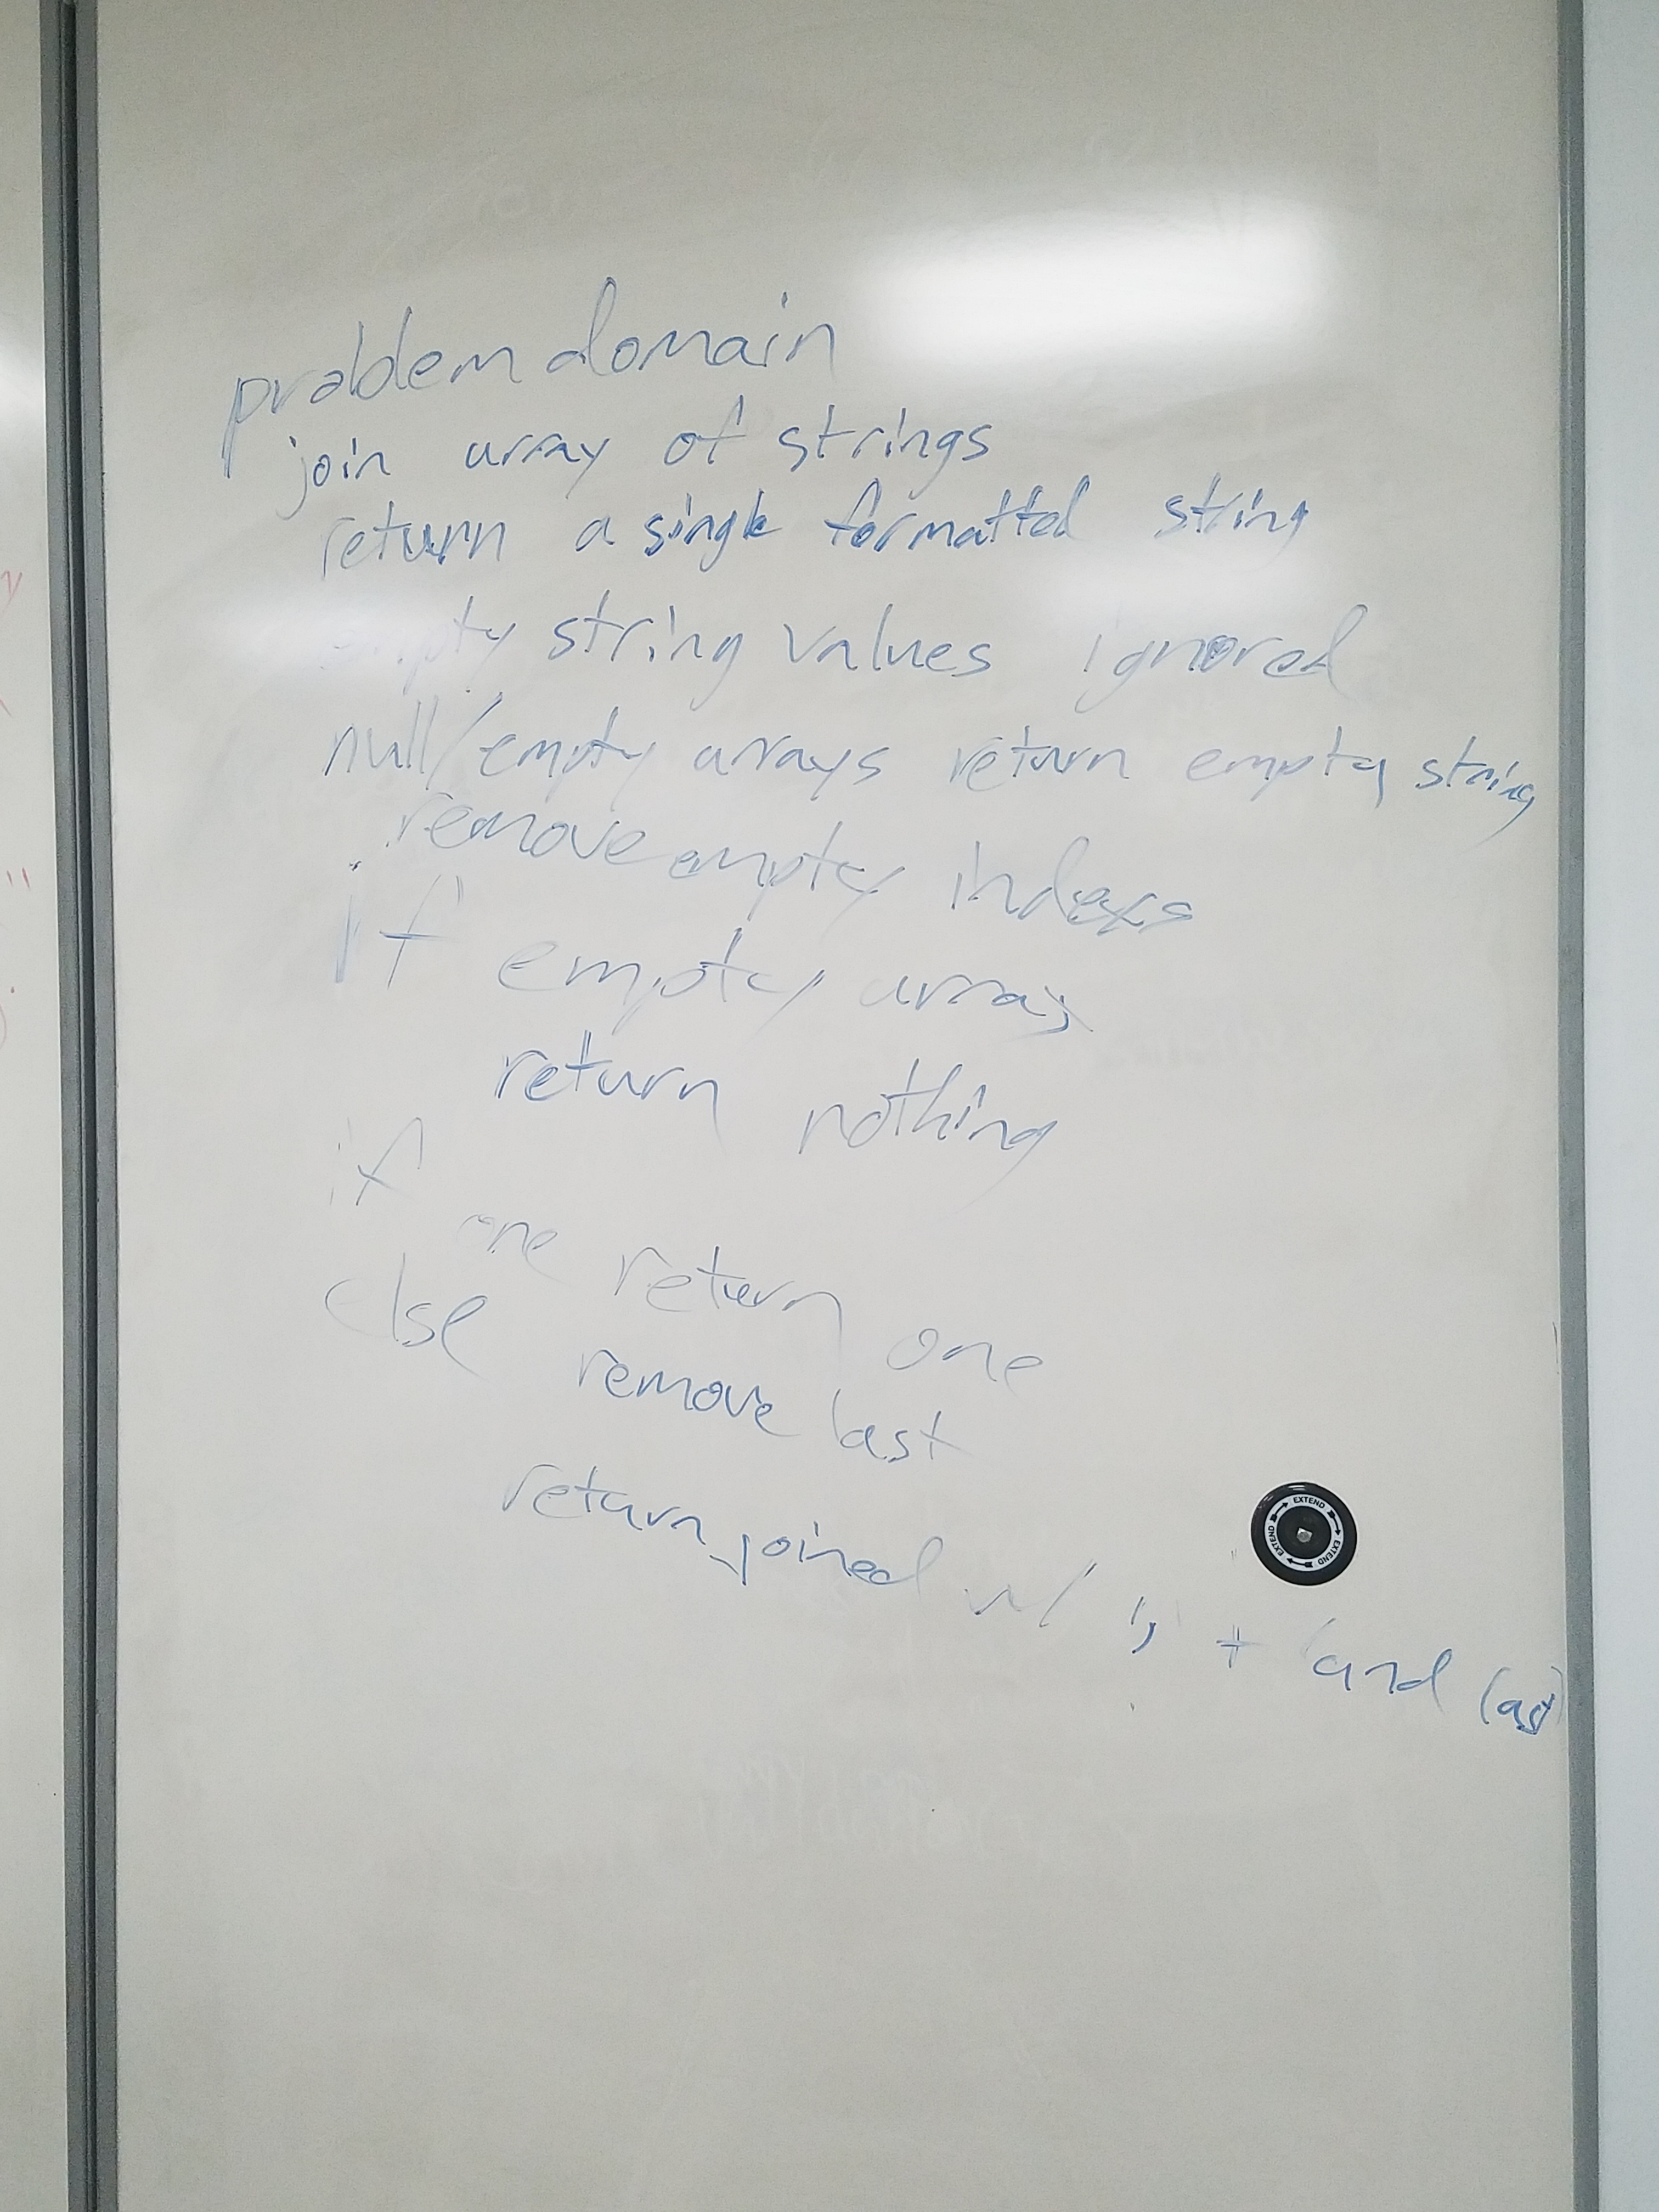 problem domain
join array of strings
return a single formatted string
empty string values ignored
null/empty arrays return empty string
remove empty indexs
if empty array
return nothing
if one return one
else remove last
return joined w/ ',' + 'and last
EXTEND EXTEND EXTEND